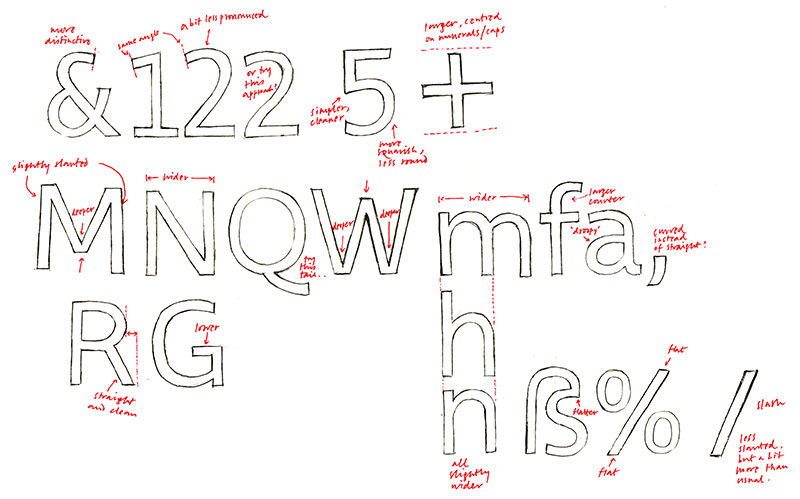 more
distinctive
same angle
a bit less pronounced
longer, centred
on numerals/caps
& 1 2 2 5 +
or try
this
approach?
simpler,
cleaner
more
squarish,
less round
slightly slanted
wider
deeper
M N Q W m f a ,
deeper
deeper
wider
larger
counter
'droopy'
curved
instead
of straight?
try
this
tail..
R G
lower
straight
and clean
h
n
all
slightly
wider
ß % /
flatter
flat
flat
slash
less
slanted.
but a bit
more than
usual.